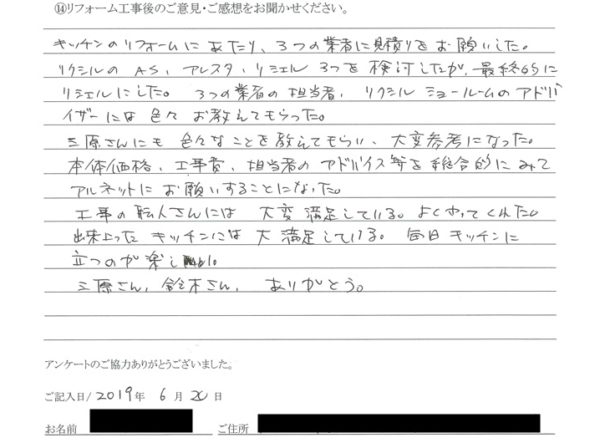 ⑭リフォーム工事後のご意見・ご感想をお聞かせください。
キッチンのリフォームにあたり、3つの業者に見積りをお願いした。
リクシルのAS、アレスタ、リシェル3つを検討したが、最終的に
リシェルにした。 3つの業者の担当者、リクシルショールームのアドバ
イザーには色々お教えてもらった。
三原さんにも色々なことを教えてもらい、大変参考になった。
本体価格、工事費、担当者のアドバイス等を総合的にみて
アルネットにお願いすることになった。
工事の職人さんには大変満足している。よくやってくれた。
出来上ったキッチンには大満足している。毎日キッチンに
立つのが楽し
三原さん、鈴木さん、ありがとう。
アンケートのご協力ありがとうございました。
ご記入日/2019年6月20日
お名前 ご住所